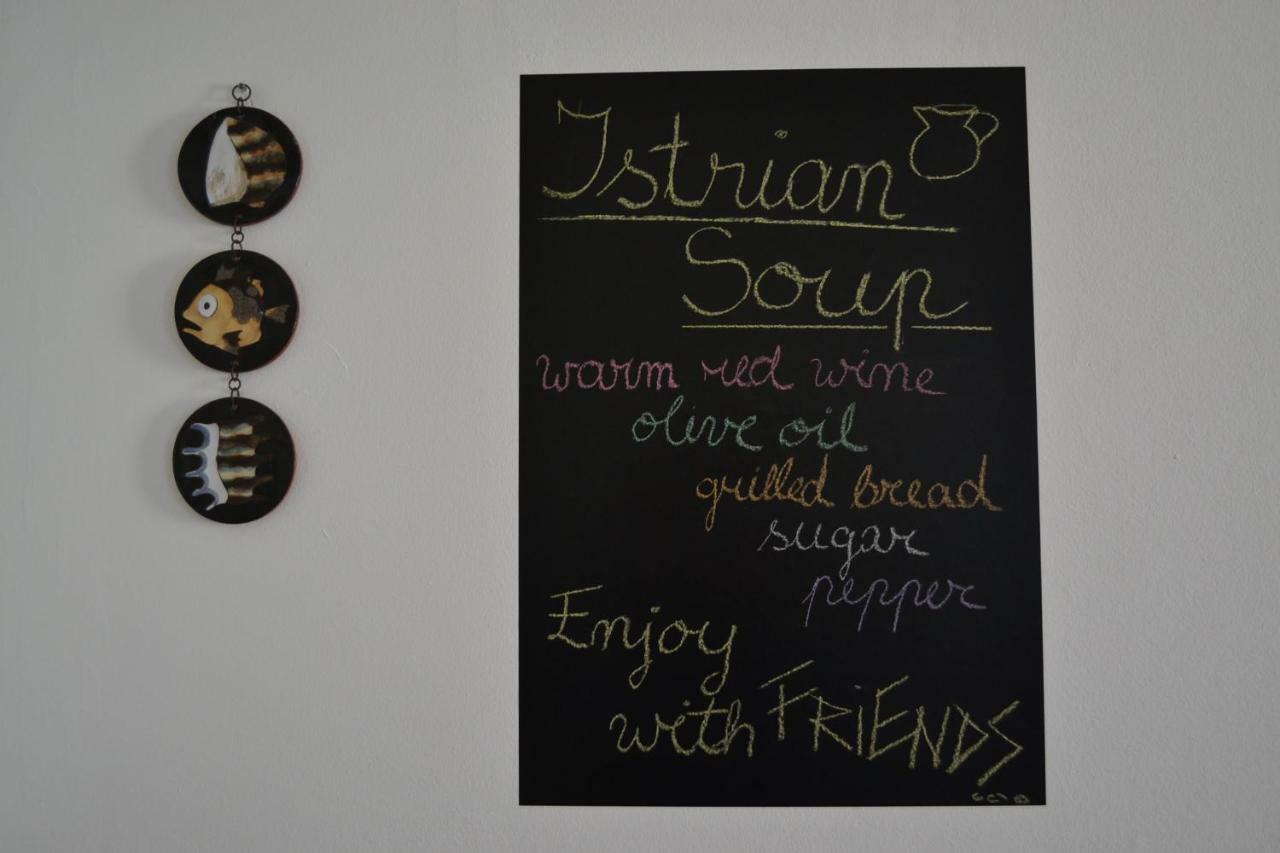 Istrian
Soup
warm red wine
olive oil
grilled bread
sugar
pepper
Enjoy
with FRiENDS